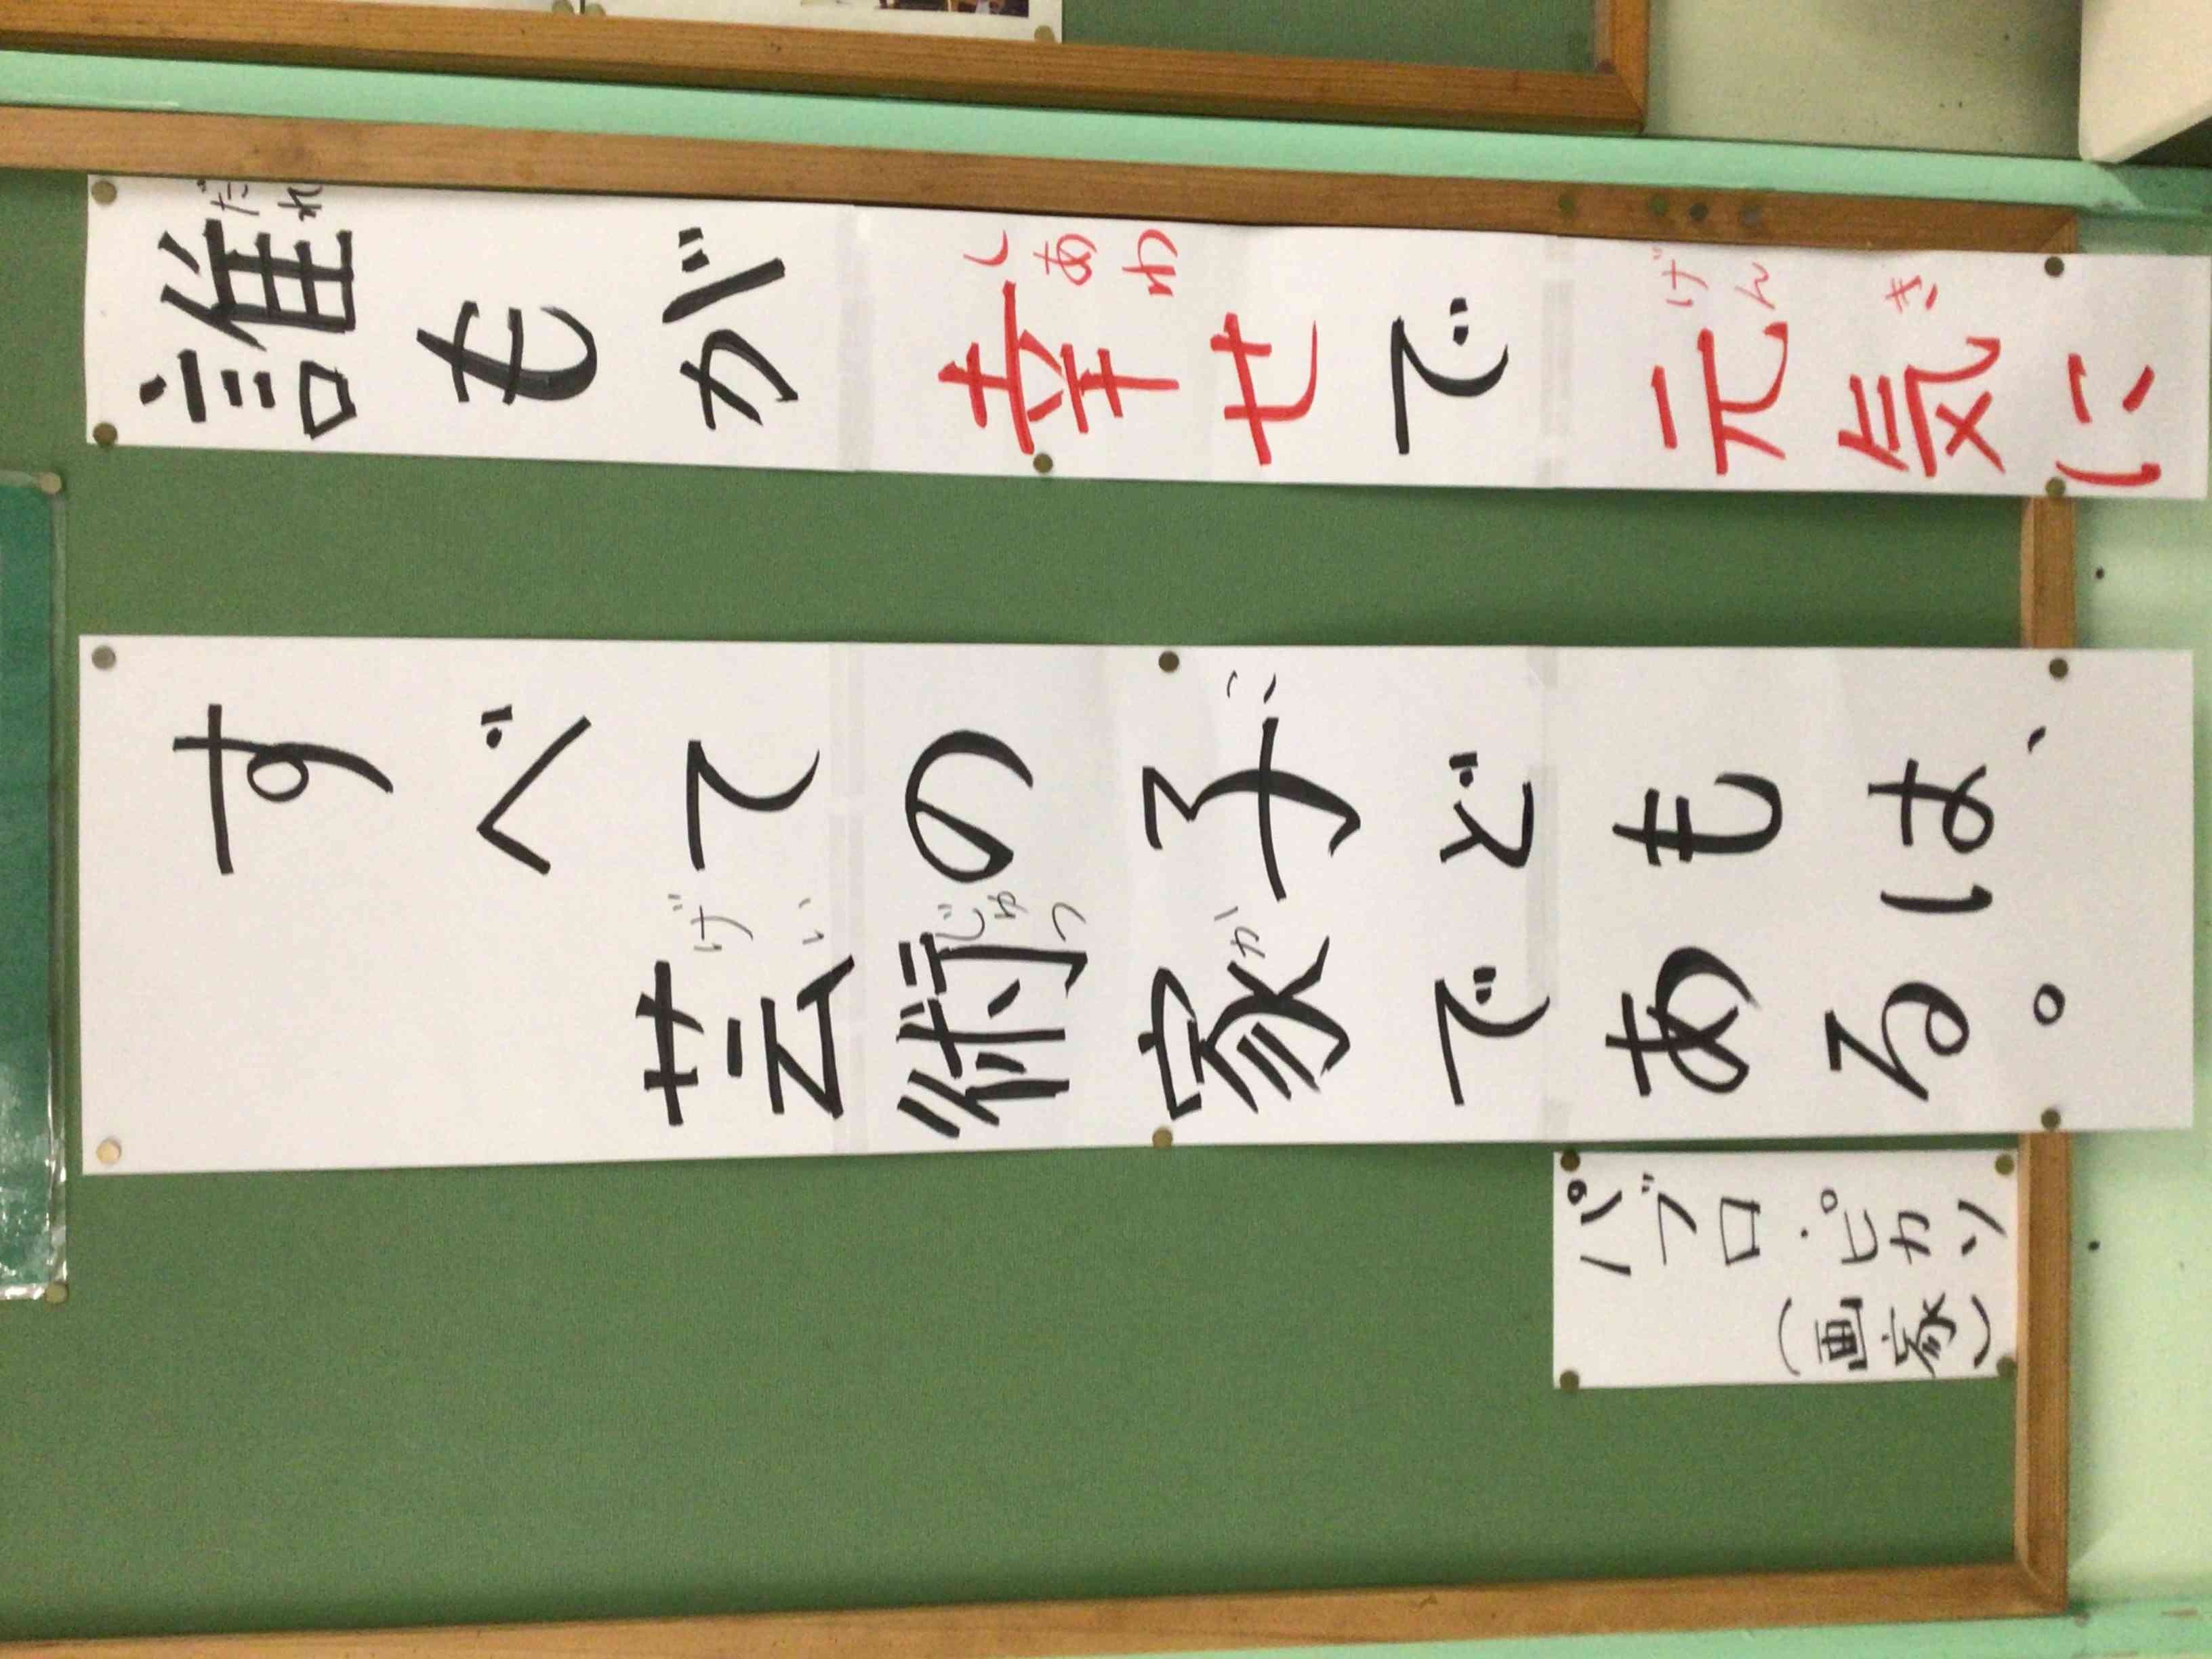 誰もが幸せで元気に
だれ
しあわ
げんき
すべての子どもは、
芸術家である。
げいじゅつか
パブロ・ピカソ
(画家)